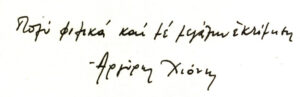 Πολύ φιλικά καί μέ μεγάλη ἐκτίμηση
- Ἀργύρης Χιόνης